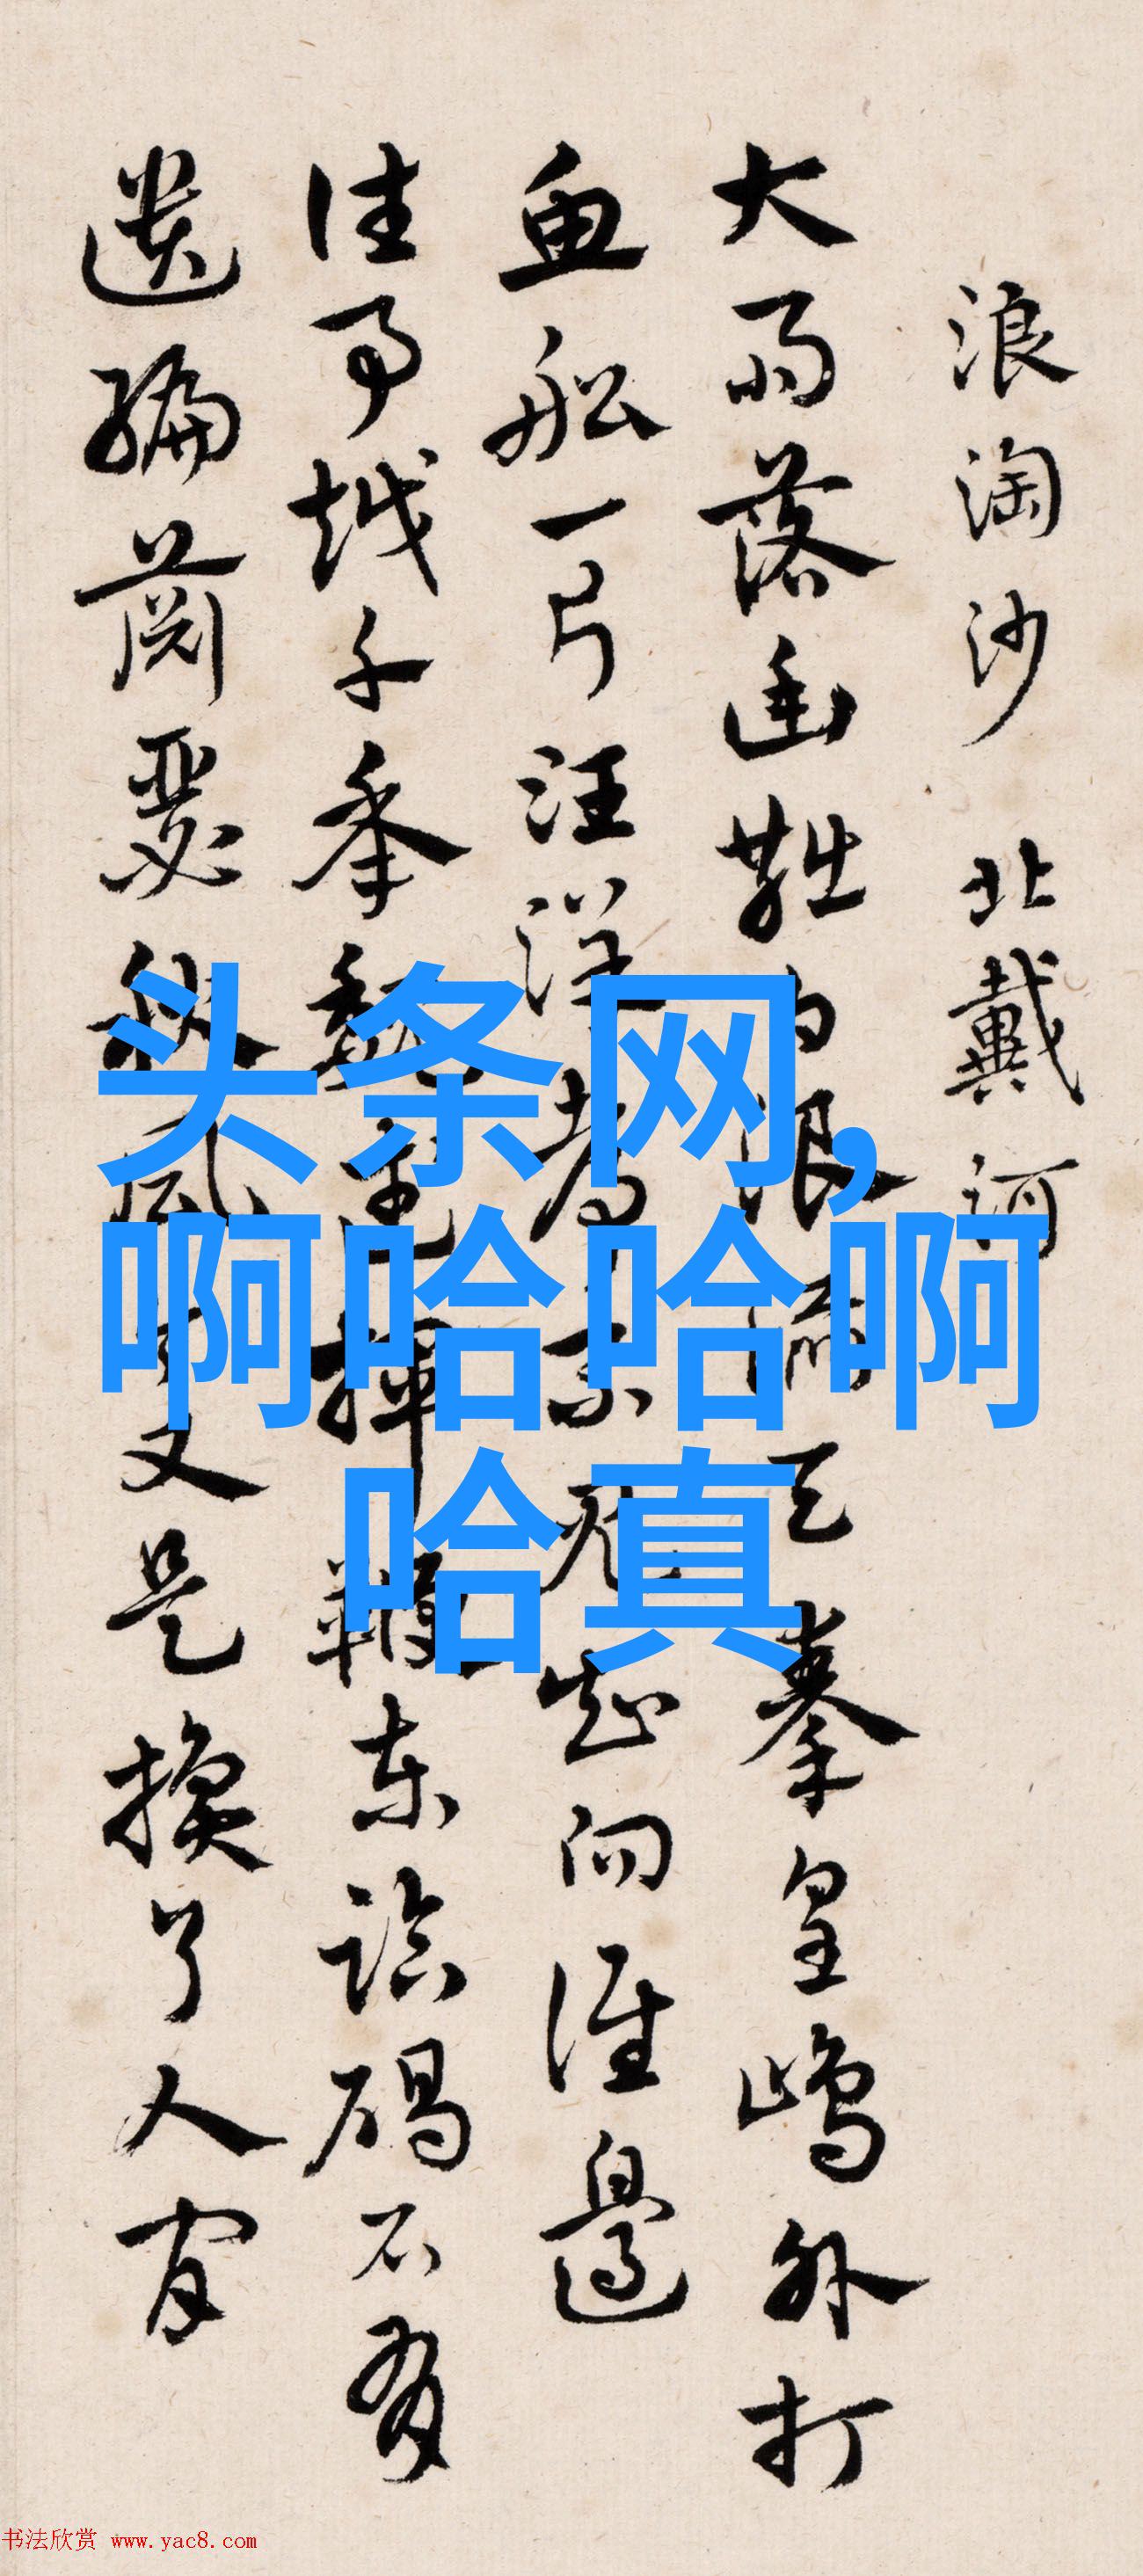 浪淘沙 北戴河
大雨落幽燕白浪滔天秦皇島外打
魚船一片汪洋都不見知向誰邊
往事越千年魏武揮鞭東臨碣石有
遺編蕭瑟秋風今又是換了人間
头条网,
啊哈哈啊
哈真
书法欣赏 www.yac8.com